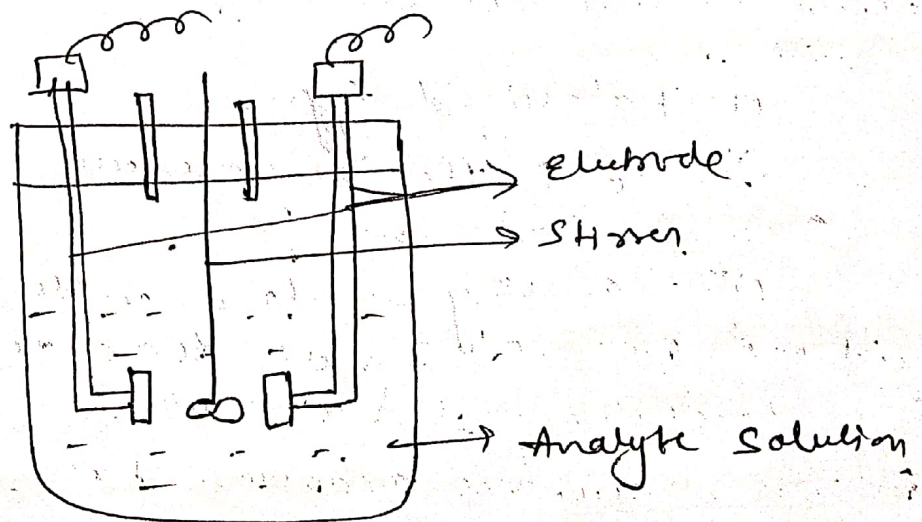 Electrode.
Stirrer
Analyte Solution